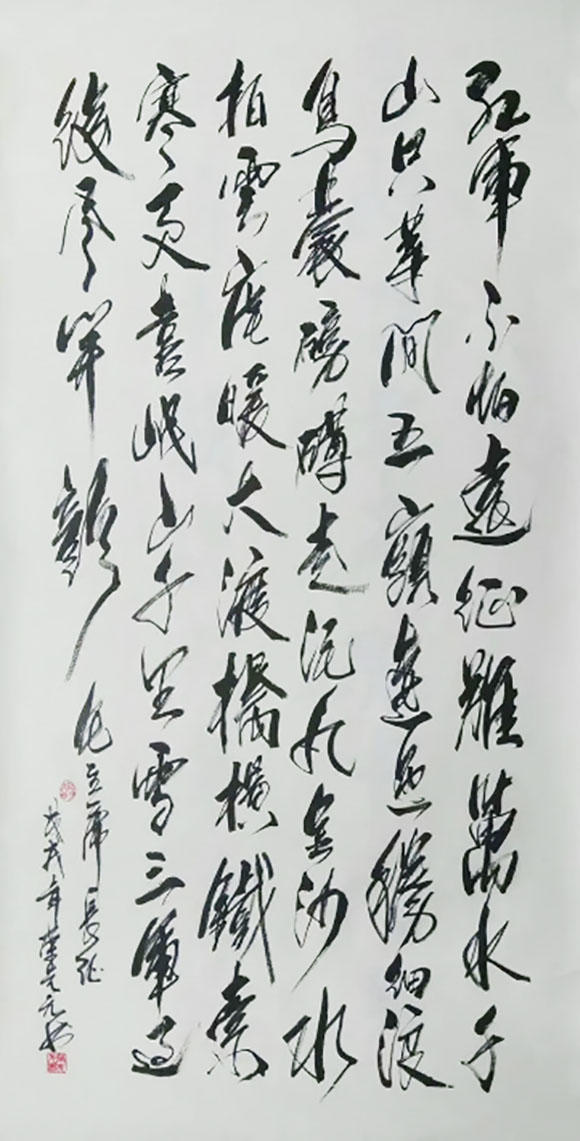 紅軍不怕遠征難萬水千
山只等閒五嶺逶迤騰細浪
烏蒙磅礴走泥丸金沙水
拍雲崖暖大渡橋横鐵索
寒更喜岷山千里雪三軍過
後盡開顔
毛主席長征
戊戌年元书